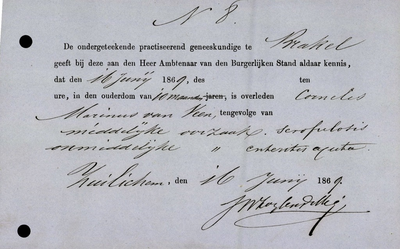 N 8.
De ondergeteekende practiserend geneeskundige te Brakel
geeft bij deze aan den Heer Ambtenaar van den Burgerlijken Stand aldaar kennis,
dat den 16 Junij 1869, des ten
ure, in den ouderdom van 10 maanden jaren, is overleden Cornelis
Marinus van Veen, tengevolge van
middelijke oorzaak. scrofulosis
onmiddelijke " enteritis acuta.
Zuilichem, den 16 Junij 1869.